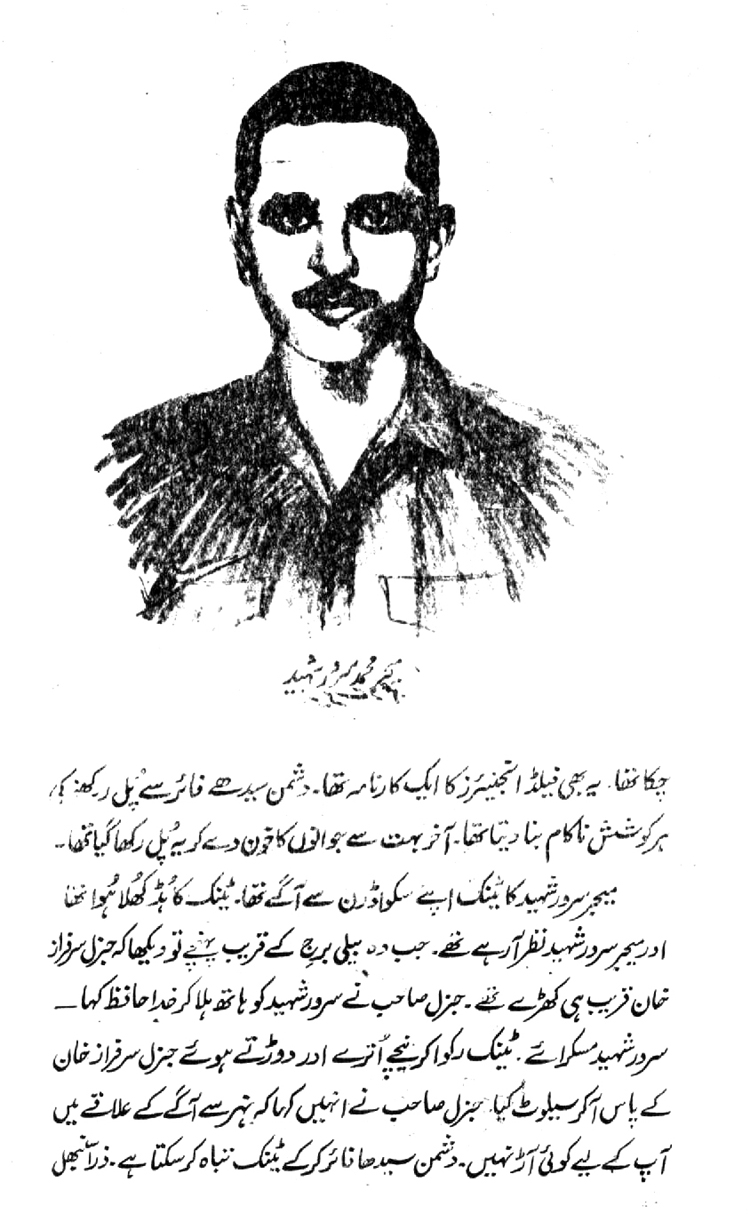 میجر محمد سرور شہید
چکا تھا۔ یہ بھی فیلڈ انجنیئرز کا ایک کارنامہ تھا۔ دشمن سیدھے فائر سے پُل رکھنے کی
ہر کوشش ناکام بنا دیتا تھا۔ آخر بہت سے جوانوں کا خون دے کر یہ پُل رکھا گیا تھا۔
میجر سرور شہید کا ٹینک اپنے سکواڈرن سے آگے تھا۔ ٹینک کا ہُڈ کُھلا ہُوا تھا
اور میجر سرور شہید نظر آ رہے تھے۔ جب وہ بیلی برج کے قریب پہنچے تو دیکھا کہ جنرل سرفراز
خان قریب ہی کھڑے تھے۔ جنرل صاحب نے سرور شہید کو ہاتھ ہلا کر خدا حافظ کہا ــــ
سرور شہید مسکرائے۔ ٹینک رکوا کر نیچے اُترے اور دوڑتے ہوئے جنرل سرفراز خان
کے پاس آ کر سیلوٹ کیا۔ جنرل صاحب نے انہیں کہا کہ نہر سے آگے کے علاقے میں
آپ کے لیے کوئی آڑ نہیں۔ دشمن سیدھا فائر کر کے ٹینک تباہ کر سکتا ہے۔ ذرا سنبھل